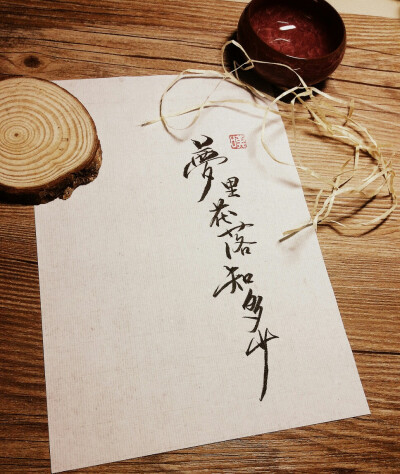 夢里花落知多少